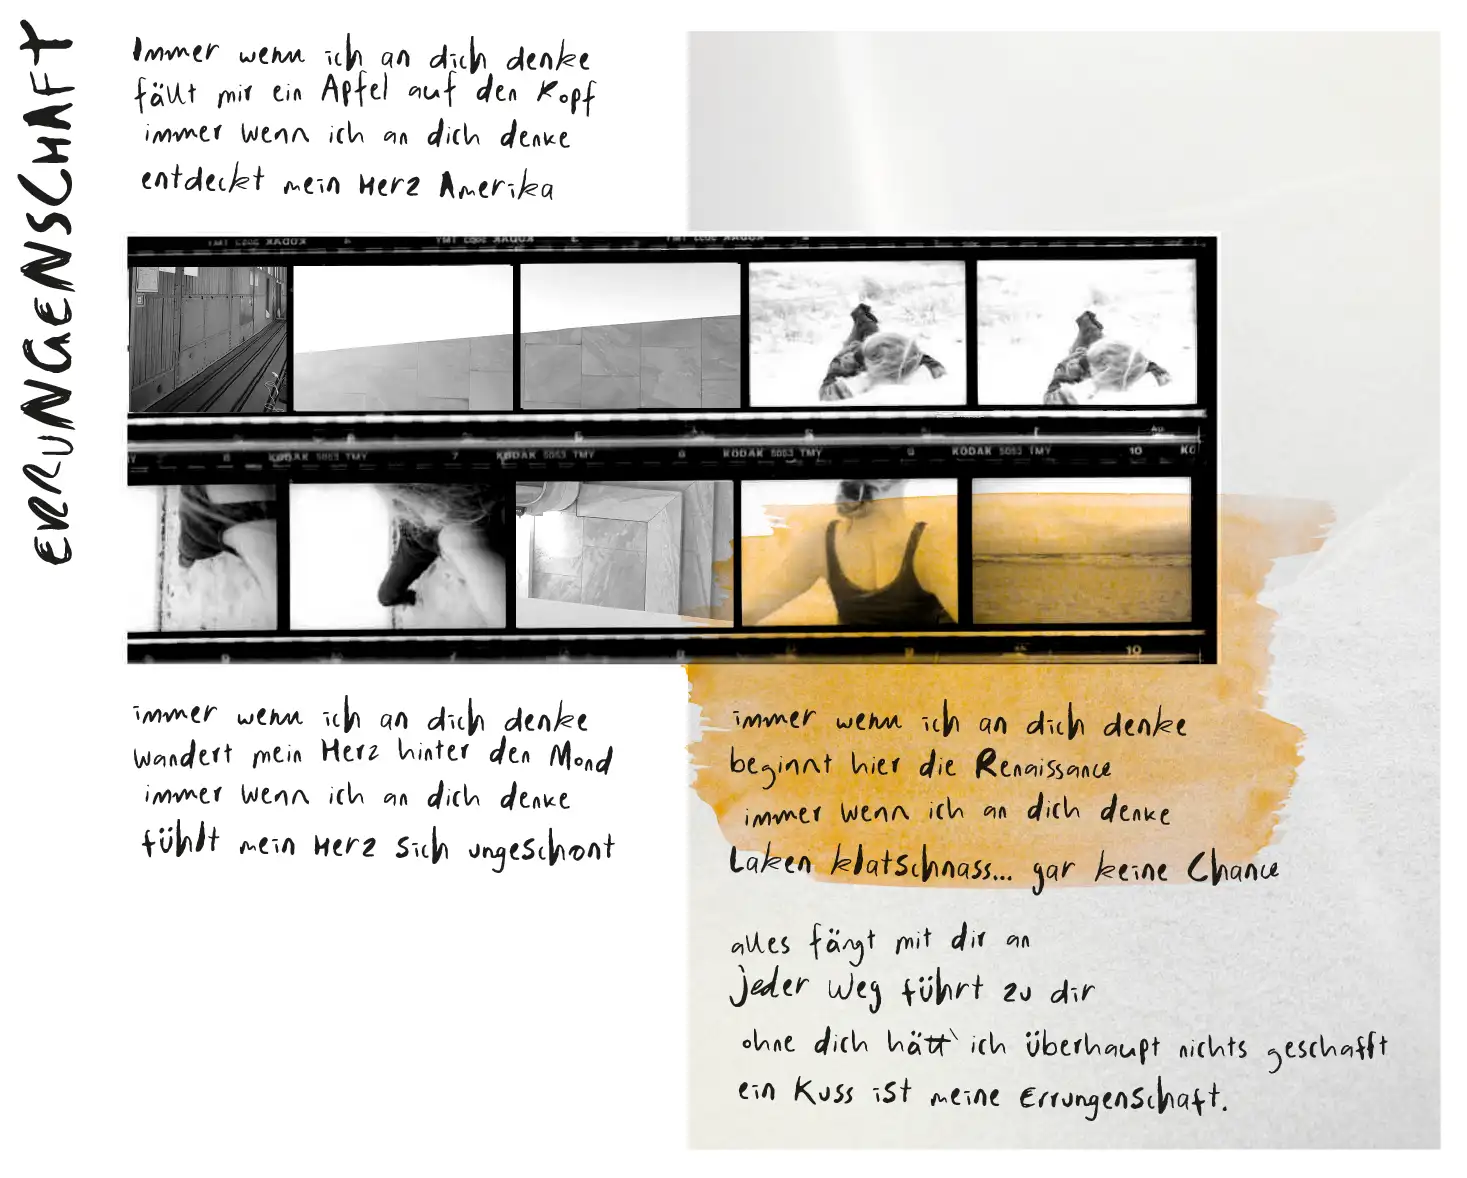 ERRUNGENSCHAFT
Immer wenn ich an dich denke
fällt mir ein Apfel auf den Kopf
immer wenn ich an dich denke
entdeckt mein Herz Amerika
KODAK 5053 TMY
KODAK 5053 TMY
KODAK 5053 TMY
8 KODAK 5053 TMY 7 KODAK 5053 TMY 8 KODAK 5053 TMY 9 KODAK 5053 TMY 10 KO
10
immer wenn ich an dich denke
wandert mein Herz hinter den Mond
immer wenn ich an dich denke
fühlt mein Herz sich ungeschont
immer wenn ich an dich denke
beginnt hier die Renaissance
immer wenn ich an dich denke
Laken klatschnass... gar keine Chance
alles fängt mit dir an
jeder Weg führt zu dir
ohne dich hätt` ich überhaupt nichts geschafft
ein Kuss ist meine Errungenschaft.